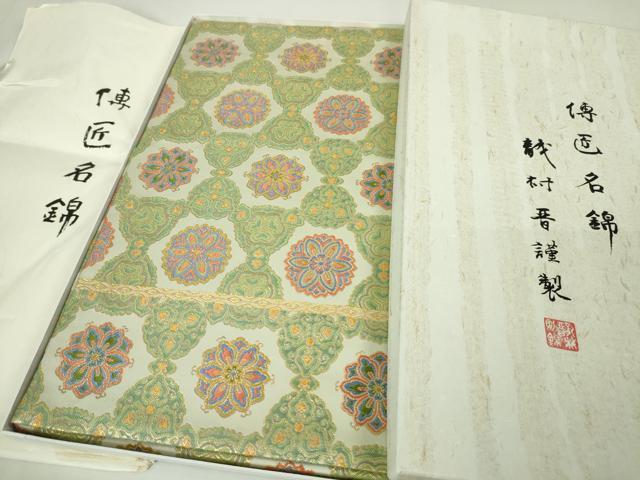 傳匠名錦
傳匠名錦
龍村晋謹製